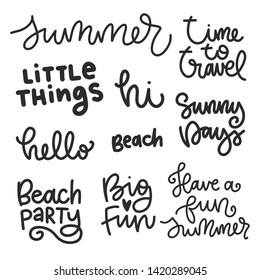 summer
time
to
travel
LITTLE
THINGS
hi
Sunny
Days
hello
BEACH
Beach
PARTY
Big
Fun
Have a
fun
summer
shutterstock.com · 1420289045